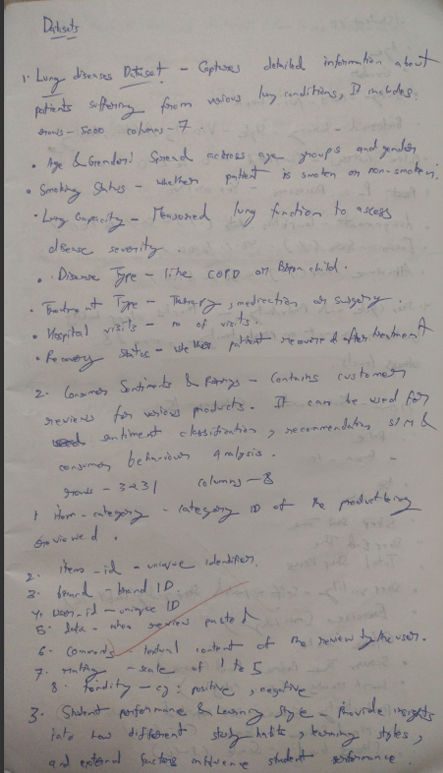 Datasets
1. Lung diseases Dataset - Captures detailed information about
patients suffering from various lung conditions, It includes
rows - 5000 columns - 7
• Age & Gender: Spread across age groups and gender
• Smoking Status - whether patient is smoker or non-smoker.
• Lung Capacity - Measured lung function to assess
disease severity.
• Disease Type - like COPD or
• Treatment Type - Therapy, medication or surgery.
• Hospital visits - n of visits.
• Recovery status - whether patient recovered after treatment
2. Consumer Sentiments & Ratings - contains customer
reviews for various products. It can be used for
sentiment classification, recommendation &
consumer behaviour analysis.
rows - 3231 columns - 8
1 Item-category - category ID of the product being
reviewed.
2. item-id - unique identifier.
3. brand - brand ID
4. user-id - unique ID
5. date - when review posted
6. Comments - textual content of the review by the user.
7. rating - scale of 1 to 5
8. - eg: positive, negative
3. Student performance & Learning Style - Provide insights
into how different study habits, learning styles,
and external factors influence student performance.